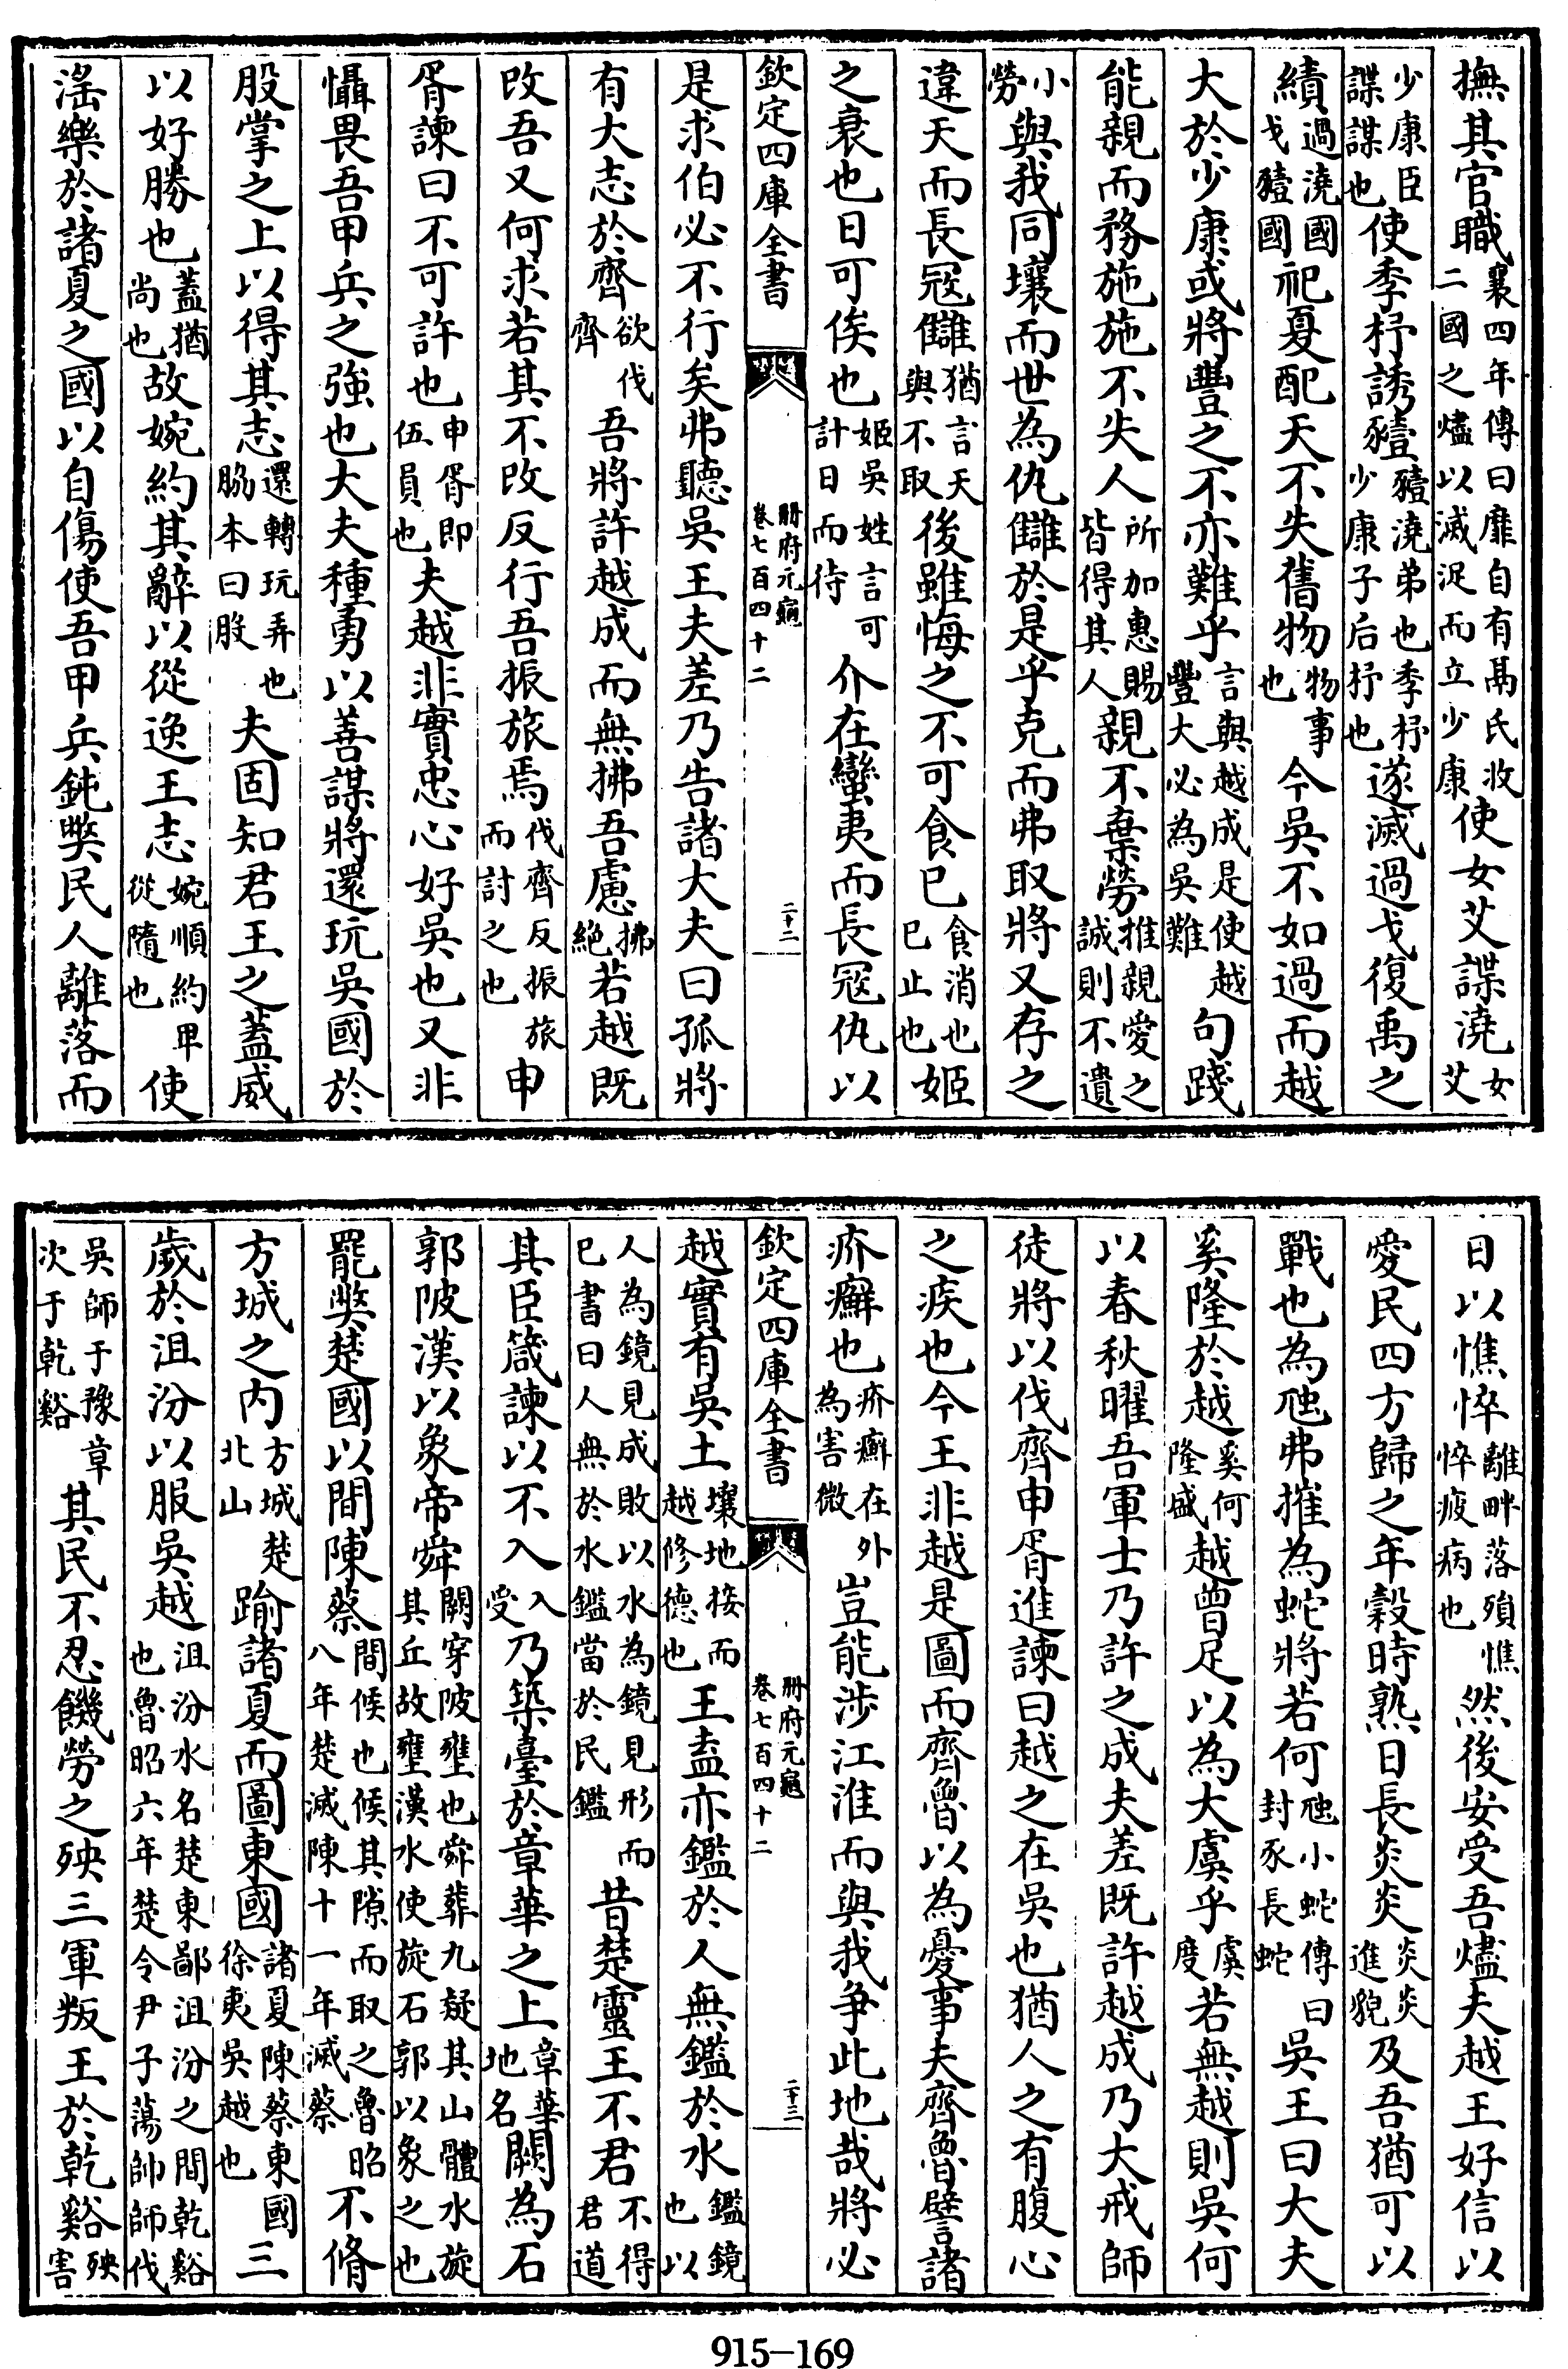 撫其官職襄四年傳曰靡自有鬲氏收二國之燼以滅浞而立少康使女艾諜澆女艾
少康臣諜諜也使季杼誘豷豷澆弟也季杼少康子后杼也遂滅過戈復禹之
績過澆國戈豷國祀夏配天不失舊物物事也今吳不如過而越
大於少康或將豐之不亦難乎言與越成是使越豐大必為吳難句踐
能親而務施施不失人所加惠賜皆得其人親不棄勞推親愛之誠則不遺
小勞與我同壤而世為仇讎於是乎克而弗取將又存之
違天而長冦讎猶言天與不取後雖悔之不可食已食消也已止也姬
之衰也日可俟也姬吳姓言可計日而待介在蠻夷而長冦仇以
欽定四庫全書 冊府元龜卷七百四十二 二十二
是求伯必不行矣弗聽吳王夫差乃告諸大夫曰孤將
有大志於齊欲伐齊吾將許越成而無拂吾慮拂絶若越既
改吾又何求若其不改反行吾振旅焉伐齊反振旅而討之也申
胥諫曰不可許也申胥即伍員也夫越非實忠心好吳也又非
懾畏吾甲兵之強也大夫種勇以善謀將還玩吳國於
股掌之上以得其志還轉玩弄也脇本曰股夫固知君王之蓋威
以好勝也蓋猶尚也故婉約其辭以從逸王志婉順約卑從隨也使
滛樂於諸夏之國以自傷使吾甲兵鈍獘民人離落而
日以憔悴離畔落殞憔悴疲病也然後安受吾燼夫越王好信以
愛民四方歸之年穀時熟日長炎炎炎炎進貌及吾猶可以
戰也為虺弗摧為蛇將若何虺小蛇傳曰封豕長蛇吳王曰大夫
奚隆於越奚何隆盛越曾足以為大虞乎虞度若無越則吳何
以春秋曜吾軍士乃許之成夫差既許越成乃大戒師
徒將以伐齊申胥進諫曰越之在吳也猶人之有腹心
之疾也今王非越是圖而齊魯以為憂事夫齊魯譬諸
疥癬也疥癬在外為害微豈能涉江淮而與我争此地哉將必
欽定四庫全書 冊府元龜卷七百四十二 二十三
越實有吳土壤地接而越修德也王盍亦鑑於人無鑑於水鑑鏡也以
人為鏡見成敗以水為鏡見形而已書曰人無於水鑑當於民鑑昔楚靈王不君不得君道
其臣箴諫以不入入受乃築臺於章華之上章華地名闕為石
郭陂漢以象帝舜闕穿陂壅也舜葬九疑其山體水旋其丘故壅漢水使旋石郭以象之也
罷獘楚國以間陳蔡間候也候其隙而取之魯昭八年楚滅陳十一年滅蔡不脩
方城之内方城楚北山踰諸夏而圖東國諸夏陳蔡東國徐夷吳越也三
歲於沮汾以服吳越沮汾水名楚東鄙沮汾之間乾谿也魯昭六年楚令尹子蕩帥師伐
吳師于豫章次于乾谿其民不忍饑勞之殃三軍叛王於乾谿殃害
915-169